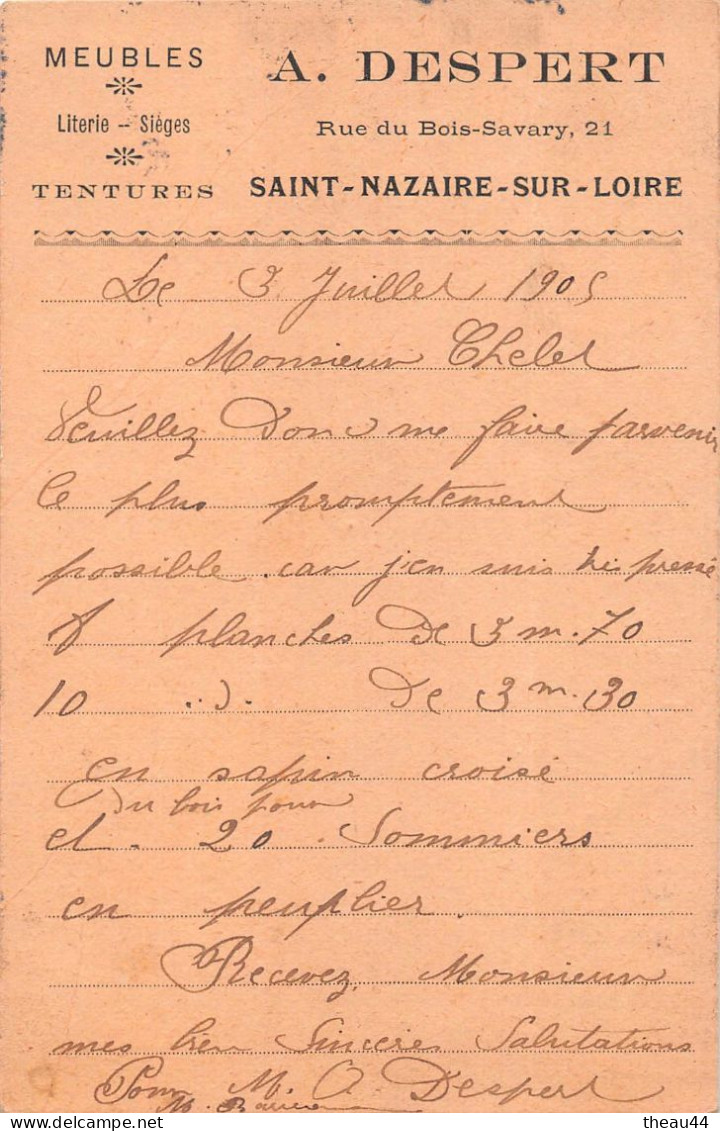 MEUBLES
Literie – Sièges
TENTURES
A. DESPERT
Rue du Bois-Savary, 21
SAINT-NAZAIRE-SUR-LOIRE
Le 3 Juillet 1905
Monsieur Chelet
Veuillez donc me faire parvenir
le plus promptement
possible car j'en suis très pressé
planches de 3 m. 70
10 .d. de 3 m. 30
en sapin croisé
du bois pour
et 20 Sommiers
en peuplier.
Recevez, Monsieur
mes bien Sincères Salutations
Pour M. A Despert
M.
theau44